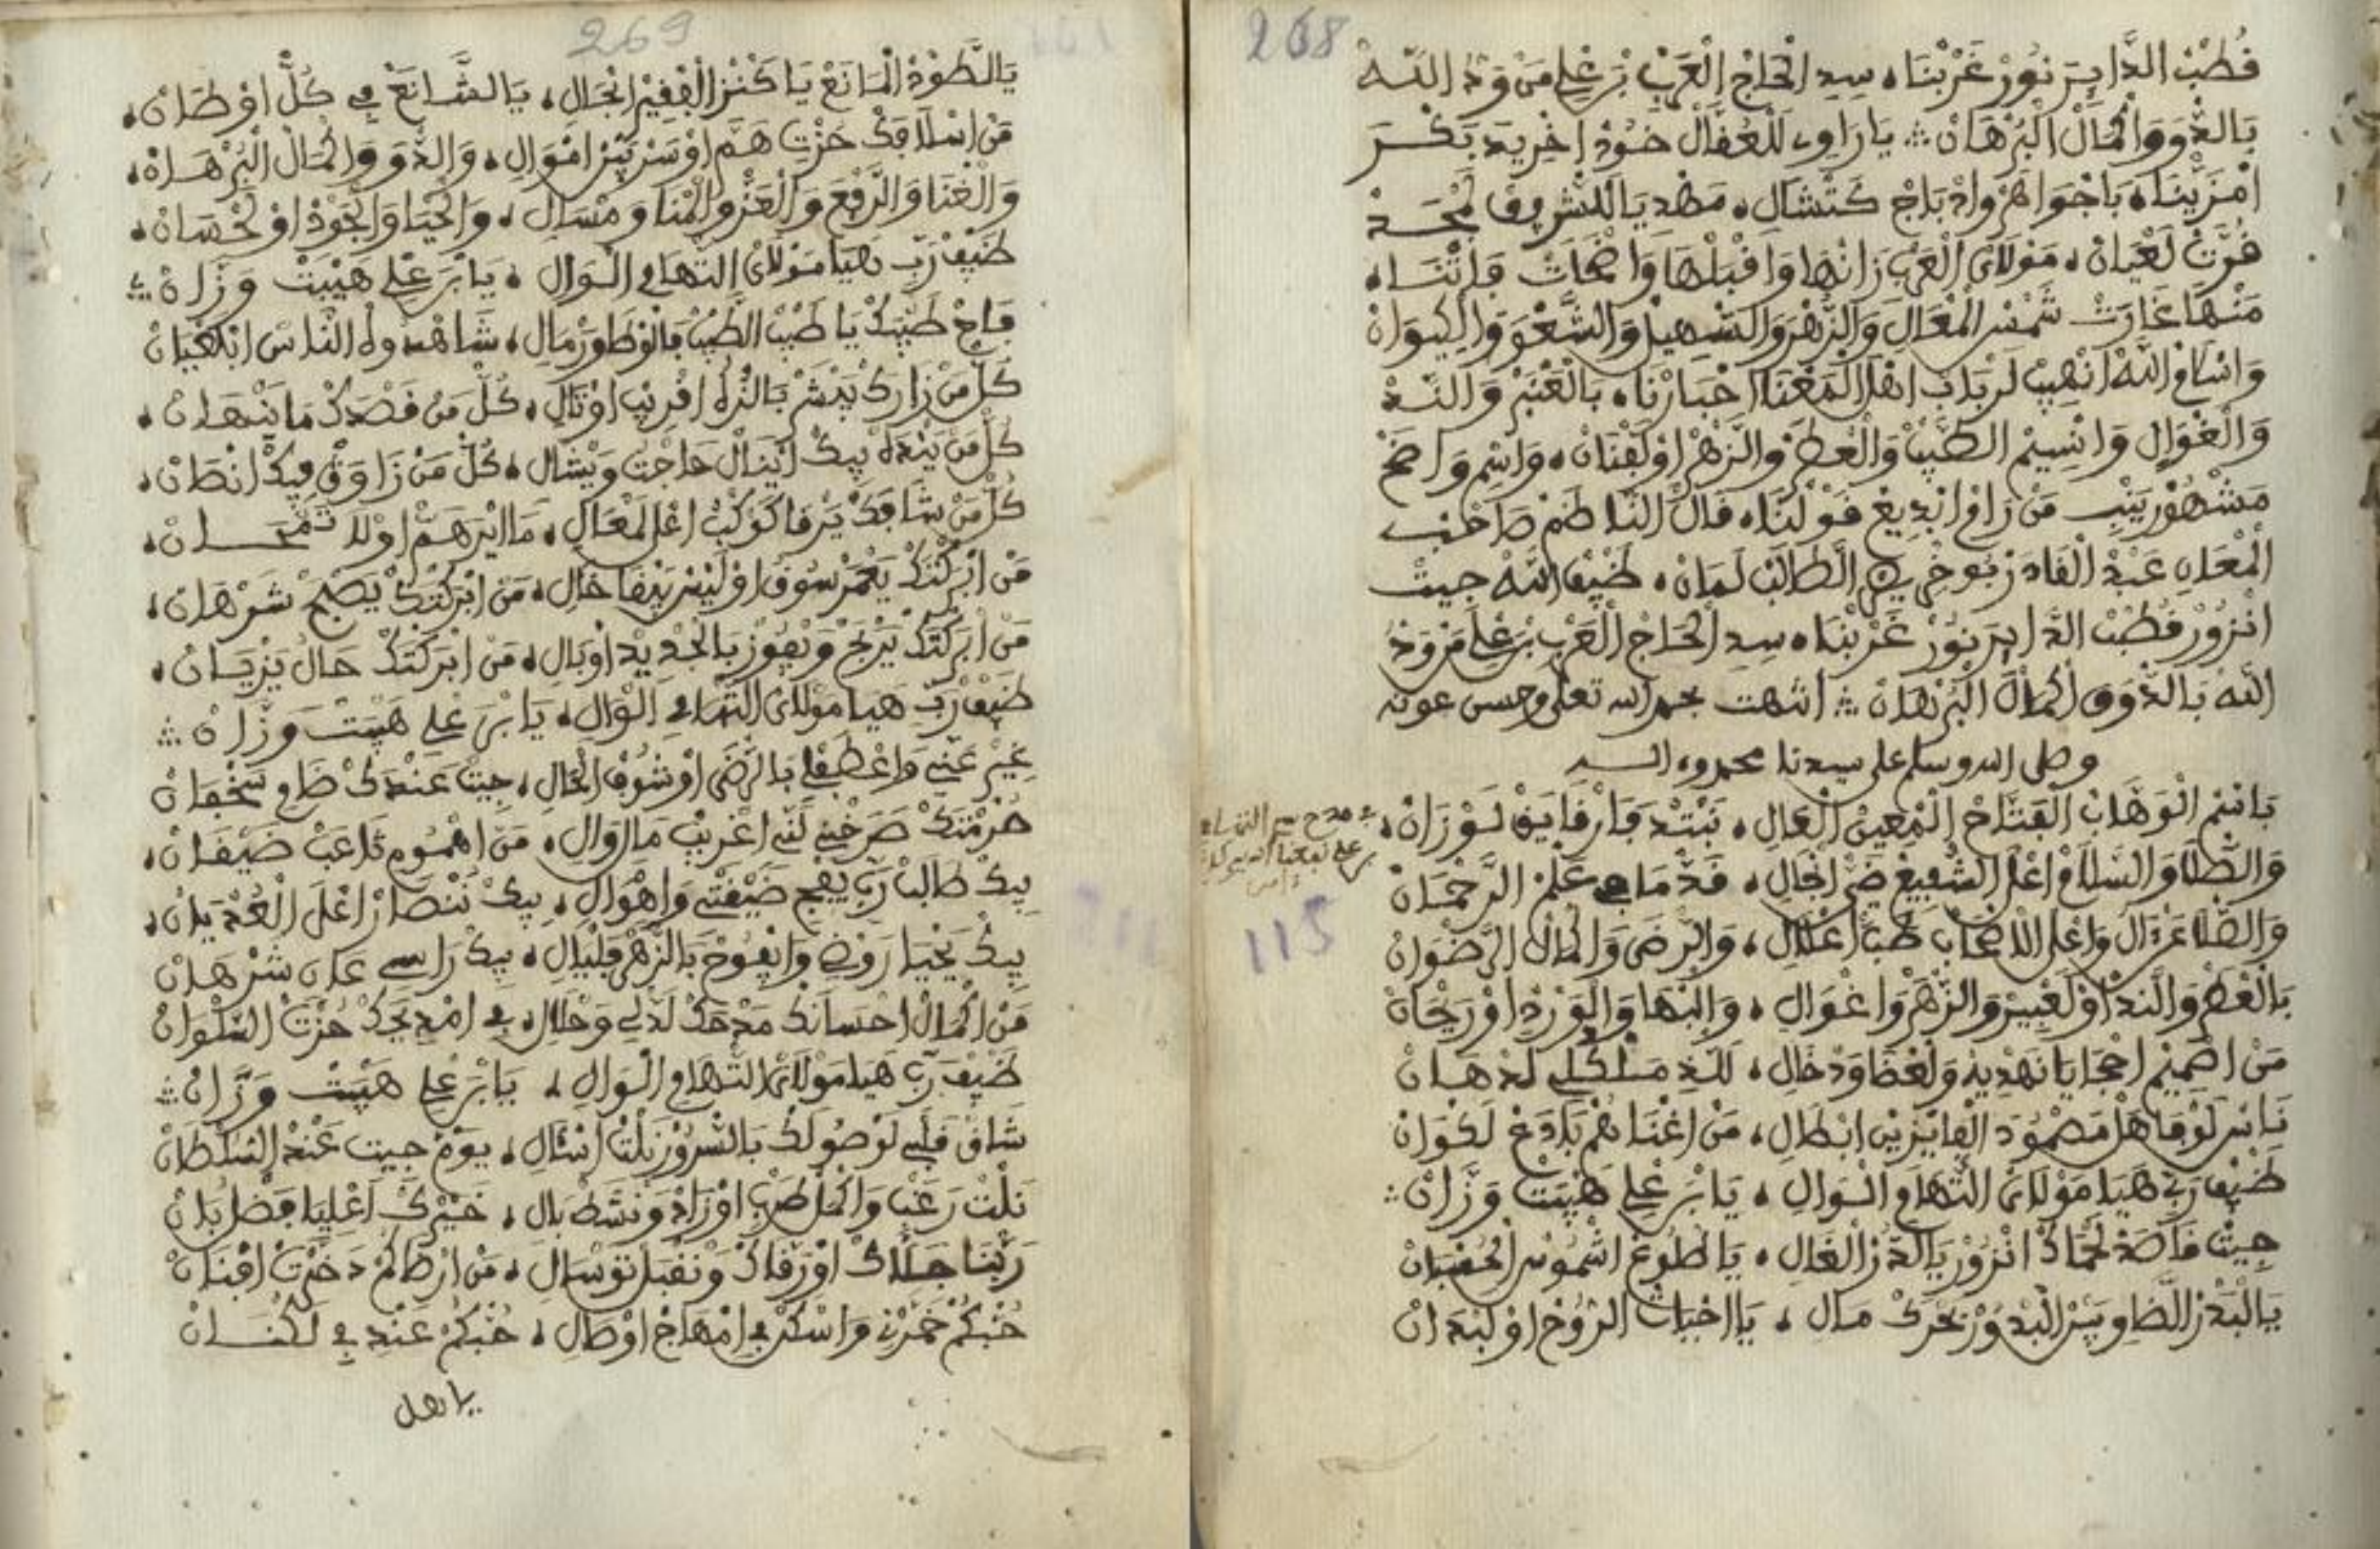 268
قُطْبْ الدَّايَرْ نُورْ غَرْبْنَا، سِيدِ الْحَاجْ الْعَرْبِ بْنْ عْلِي مَنْ وَدُ اللَّهْ
بَالذَّوْقْ وَالْكْمَالْ الْبُرْهَانْ ؞ يَا رَاوِي لَلْعُقَّالْ خُودْ اخْرِيدَ بَكْرَ
امْزَيْنَا، بَاجْوَاهَرْ وَادْبَاجْ كَتْشَالِ، مَهْدِيَا لَلشْرِيفْ مْحَمَّدْ
قُرَّتْ لَعْيَانْ، مَوْلَايَ الْعَرْبِ زَانْهَا وَاقْبَلْهَا وَاضْحَاتْ فَاتْنَا،
مَنْهَا غَارَتْ شَمْسْ الْمْعَالِ وَالزَّهْرَ وَالسّْهِيلْ وَالشَّعْوَ وَالْكِيوَانْ
وَاسْلَامْ اللَّهْ انْهِيبْ لَرْبَابْ اهْلْ الْمَعْنَا اخْبَارْنَا، بَالْعَنْبَرْ وَالنَّدْ
وَالْغْوَالِ وَانْسِيمْ الطِّيبْ وَالْعْطَرْ وَالزَّهْرْ اوْلَفْنَانْ، وَاسْمِ وَاضَحْ
مَشْهُورْ يَنْبَ مَنْ رَامْ ابْدِيعْ قَوْلْنَا، قَالْ النَّاظَمْ صَاحَبْ
الْمْعَانِ عَبْدْ الْقَادَرْ بُوخْرِيصْ الطَّالَبْ لَمَانْ، ضَيْفْ اللَّهْ جِيتْ
انْزُورْ قُطْبْ الدَّايَرْ نُورْ غَرْبْنَا، سِيدِ الْحَاجْ الْعَرْبِ بْنْ عْلِي مَنْ وَدُ
اللَّهْ بَالذَّوْقْ الْكْمَالْ الْبُرْهَانْ ؞ انتهت بحمد الله تعلى وحسن عونه
وصلى الله وسلم على سيدنا محمد وءاله
بَاسْمْ الْوَهَّابْ الْفَتَّاحْ الْمُعِينْ الْعَالِ، نَبْتْدَ فَارْقَايَقْ لَوْزَانْ،
وَالصّْلَا وَالسّْلَامْ اعْلَى الشّْفِيعْ ضَيّْ انْجَالِ، قَدّْ مَا فِي عَلْمْ الرَّحْمَانْ
وَالصّْلَا عَنْ ءَالُ وَاعْلَى الَاصْحَابْ طَبّْ اعْلَالِ، وَالرّْضَى وَاكْمَالْ الرَّضْوَانْ
بَالْعْطَرْ وَالنَّدْ اوْلَعْبِيرْ وَالزّْهَرْ وَاغْوَالِ، وَالْبْهَا وَالْوَرْدْ اوْرَيْحَانْ
مَنْ اصْمِيمْ احْجَايَا نَهْدِيهْ وَلَعْضَا وَدْخَالِ، لَلَّذِ مَسْلَكْلِي لَدْهَانْ
نَاسْ لَوْفَا هَلْ مَصْمُودَ الْفَايْزِينْ ابْطَالِ، مَنْ اغْنَاهُمْ بَلَّدَغْ لَكْوَانْ
ضَيْفْ رَبِّ هَيَا مَوْلَايَ التّْهَامِ الْوَالِ، يَا بْنْ عْلِي هَيْبَتْ وَزَّانْ ؞
جِيتْ قَاصَدْ لَحْمَاكْ انْزُورْ يَا الدُّرّْ الْغَالِ، يَا طْلُوعْ اشْمُوسْ الْحُسْبَانْ
يَا الْبَدْرْ الضَّاوِي بَيْنْ الْبْدُورْ بَحْرَكْ مَالِ، يَا احْيَاتْ الرُّوحْ اوْلَبْدَانْ
في مدح سيدي التهامي
بن علي نفعنا الله ببركاته
ءامين
115
269
يَا الطَّوْدْ الْمَانَعْ يَا كَنْزْ الْفْقِيرْ انْجَالِ، يَا الشَّايَعْ فِي كُلّْ اوْطَانْ،
مَنْ اسْلَافَكْ حَزْتِ هَمَّ اوْسَرّْ بَيْنْ امْوَالِ، وَالذَّوْقْ وَالْكْمَالْ الْبُرْهَانْ،
وَالْغْنَا وَالرَّفْعَ وَالْعَزّْ وَالْمْنَا وَمْسَالِ، وَالْحْيَا وَالْجُودْ اوْلَحْسَانْ،
ضَيْفْ رَبِّ هَيَا مَوْلَايَ التّْهَامِ الْوَالِ، يَا بْنْ عْلِي هَيْبَتْ وَزَّانْ ؞
فَاحْ طَيْبَكْ يَا طَبّْ الطّْبّْ فَالْوْطَا وَرْمَالِ، شَاهْدُوهْ النَّاسْ ابْلَعْيَانْ
كُلّْ مَنْ زَارَكْ يَبْشَرْ بَالنّْزَاهْ اقْرِيبْ اوْتَالِ، كُلّْ مَنْ قَصْدَكْ مَا يَنْهَانْ،
كُلّْ مَنْ يَنْدَهْ بِيكْ ايْنَالْ حَاجْتُ وَيْشَالِ، كُلّْ مَنْ زَاوَقْ فِيكْ انْصَانْ،
كُلّْ مَنْ شَافَكْ يَرْقَا كَوْكْبُ اعْلَى لَمْعَالِ، مَا ايْرَ هَمّْ اوْلَا تَمْحَانْ،
مَنْ ابْرَكْتَكْ يَعْمَرْ سُوقُ اوْلَيْسْ يَبْقَا خَالِ، مَنْ ابْرَكْتَكْ يَصْبَحْ شَرْهَانْ،
مَنْ ابْرَكْتَكْ يَرْبَحْ وَيْفُوزْ بَالْجْدِيدْ اوْبَالِ، مَنْ ابْرَكْتَكْ حَالُ يَزْيَانْ،
ضَيْفْ رَبِّ هَيَا مَوْلَايَ التّْهَامِ الْوَالِ، يَا بْنْ عْلِي هَيْبَتْ وَزَّانْ ؞
غِيرْ عَنِّي وَاعْطَفْلِي بَالرّْضَى اوْشُوفْ الْحَالِ، جِيتْ عَنْدَكْ ضَامِ سَخْفَانْ
حُرْمْتَكْ صَرَّخْنِي لَنِّي اغْرِيبْ مَا لِوَالِ، مَنْ اهْمُومِ تَاعَبْ ضَيْقَانْ،
بِيكْ طَالَبْ رَبِّ يَفْجِي ضَيْقْتِي وَاهْوَالِ، بِيكْ نَنْصَارْ اعْلَى الْعُدْيَانْ،
بِيكْ يَحْيَا رَوْضِي وَايْفُوحْ بَالزّْهَرْ فَلْيَالِ، بِيكْ رَاسِي عَادْ شَرْهَانْ
مَنْ اكْمَالْ احْسَانَكْ مَدْحَكْ لَدْلِي وَحْلَالِ، فِي امْدِيحَكْ حُزْتْ السَّلْوَانْ
ضَيْفْ رَبِّ هَيَا مَوْلَايَ التّْهَامِ الْوَالِ، يَا بْنْ عْلِي هَيْبَتْ وَزَّانْ ؞
شَاقْ قَلْبِي لَوْصُولَكْ بَالسّْرُورْ نَلْتْ انْثَالِ، يَوْمْ جِيتْ عَنْدْ السُّلْطَانْ
نَلْتْ رَغْبِ وَاكْمَلْ طَرْبِ اوْزَادْ وَنْشَطْ بَالِ، خَيْرَكْ اعْلِيَا فَضْلُ بَانْ
رَبّْنَا جَلَّاكْ اوْرَقَّاكْ وَنْقْبَلْ تَوْسَالِ، مَنْ ارْضَاكُمْ دَخَّرْتْ افْنَانْ
حُبّْكُمْ خَمْرْنِ وَاسْكَنْ فِي امْهَاجْ اوْصَالِ، حُبّْكُمْ عَنْدِ فِي لَكْنَانْ
يا اهل